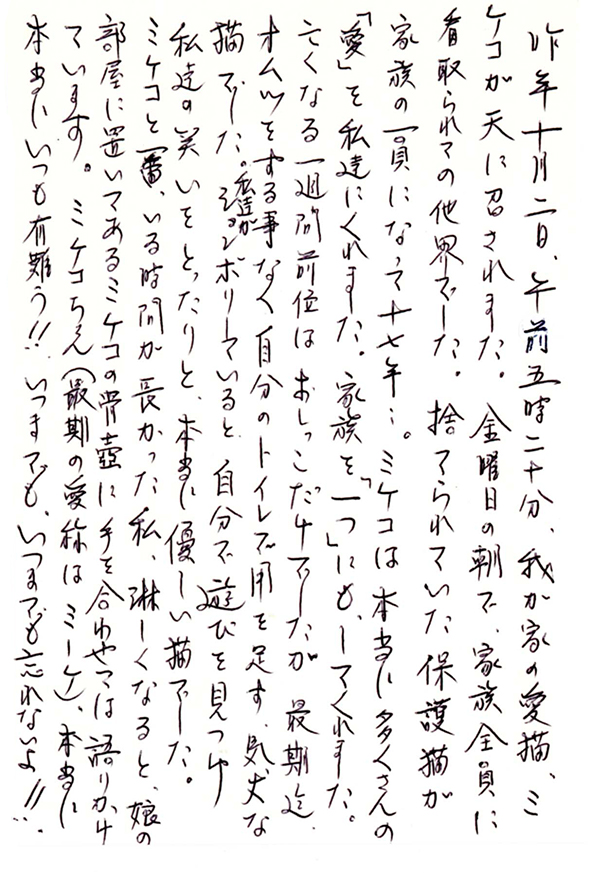 昨年十月二日、午前五時二十分、我が家の愛猫、ミ
ケコが天に召されました。金曜日の朝で、家族全員に
看取られての他界でした。捨てられていた保護猫が
家族の一員になって十七年…。ミケコは本当に多くさんの
「愛」を私達にくれました。家族を「一つ」にも、してくれました。
亡くなる一週間前位はおしっこだけでしたが、最期迄、
オムツをする事なく自分のトイレで用を足す、気丈な
猫でした。私達がションボリしていると、自分で遊びを見つけ
私達の笑いをとったりと、本当に優しい猫でした。
ミケコと一番、いる時間が長かった私、淋しくなると、娘の
部屋に置いてあるミケコの骨壺に手を合わせては語りかけ
ています。ミケコちゃん(最期の愛称はミーケ)、本当に
本当にいつも有難う!!いつまでも、いつまでも忘れないよ!!…